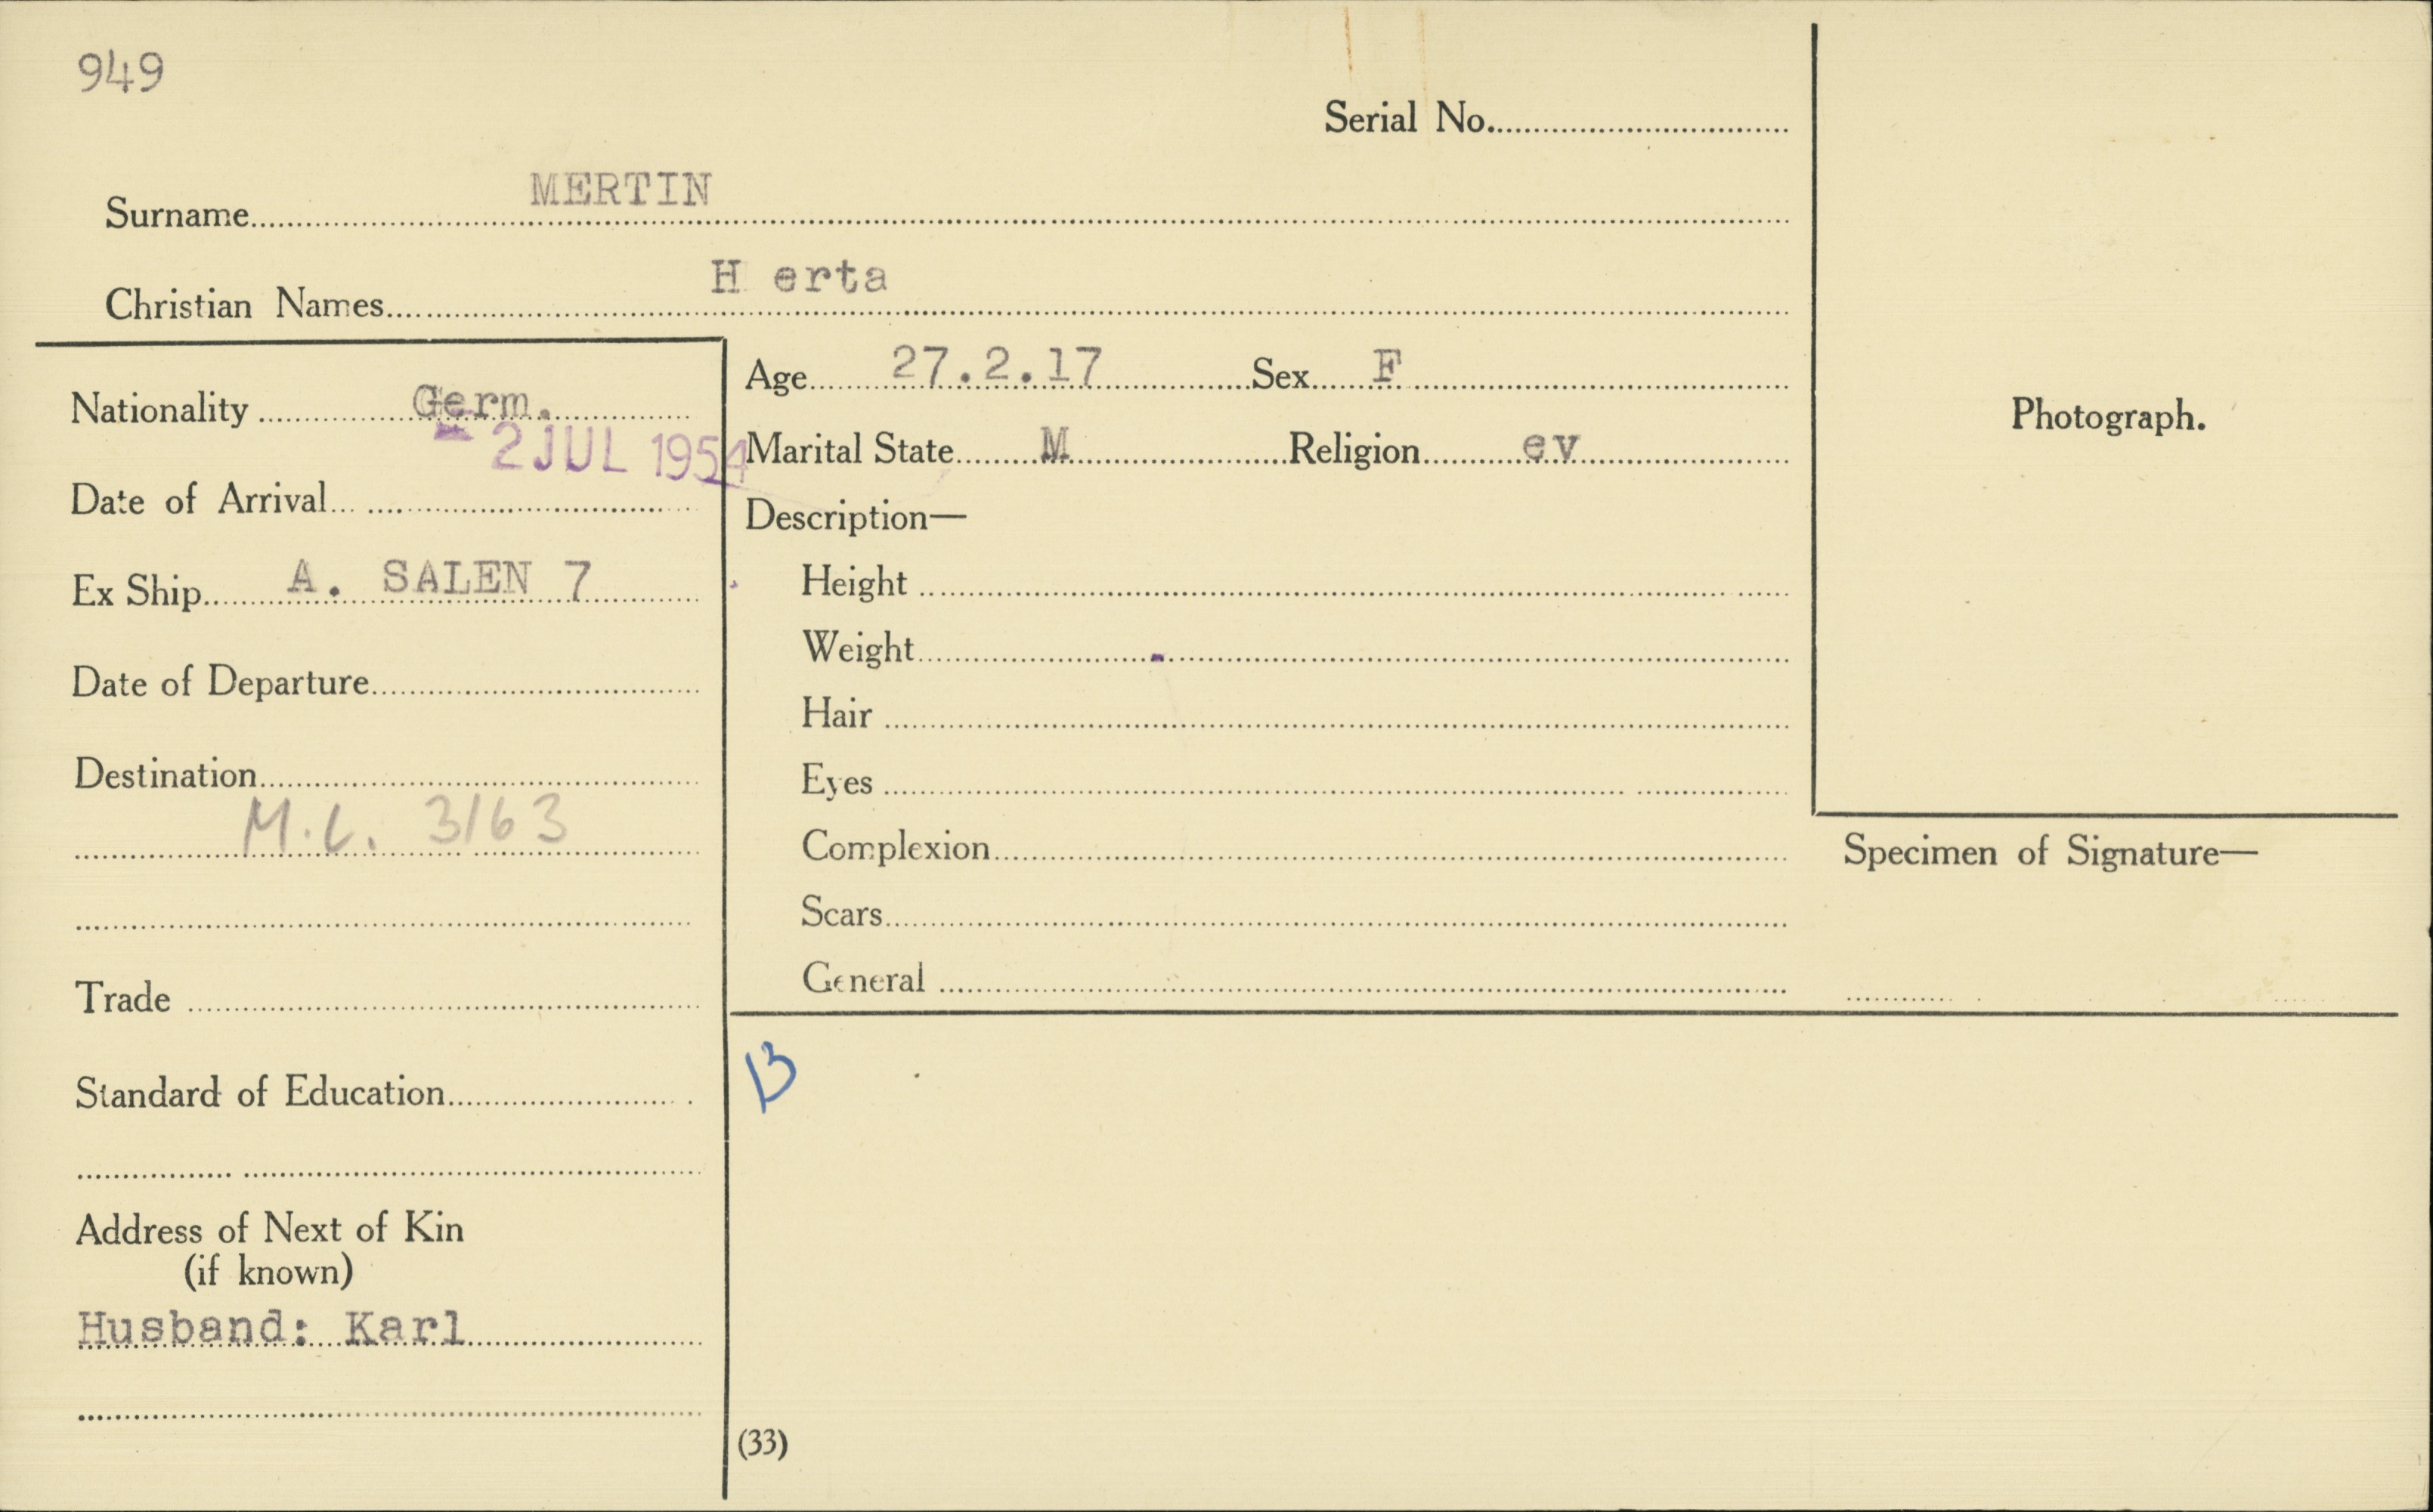 949
Serial No.
Surname MERTIN
Christian Names H erta
Nationality Germ.
- 2 JUL 1954
Date of Arrival
Ex Ship A. SALEN 7
Date of Departure
Destination
M.C. 3163
Trade
Standard of Education
Address of Next of Kin
(if known)
Husband: Karl
Age 27.2.17 Sex F
Marital State M Religion ev
Description—
Height
Weight
Hair
Eyes
Complexion
Scars
General
Photograph.
Specimen of Signature—
(33)